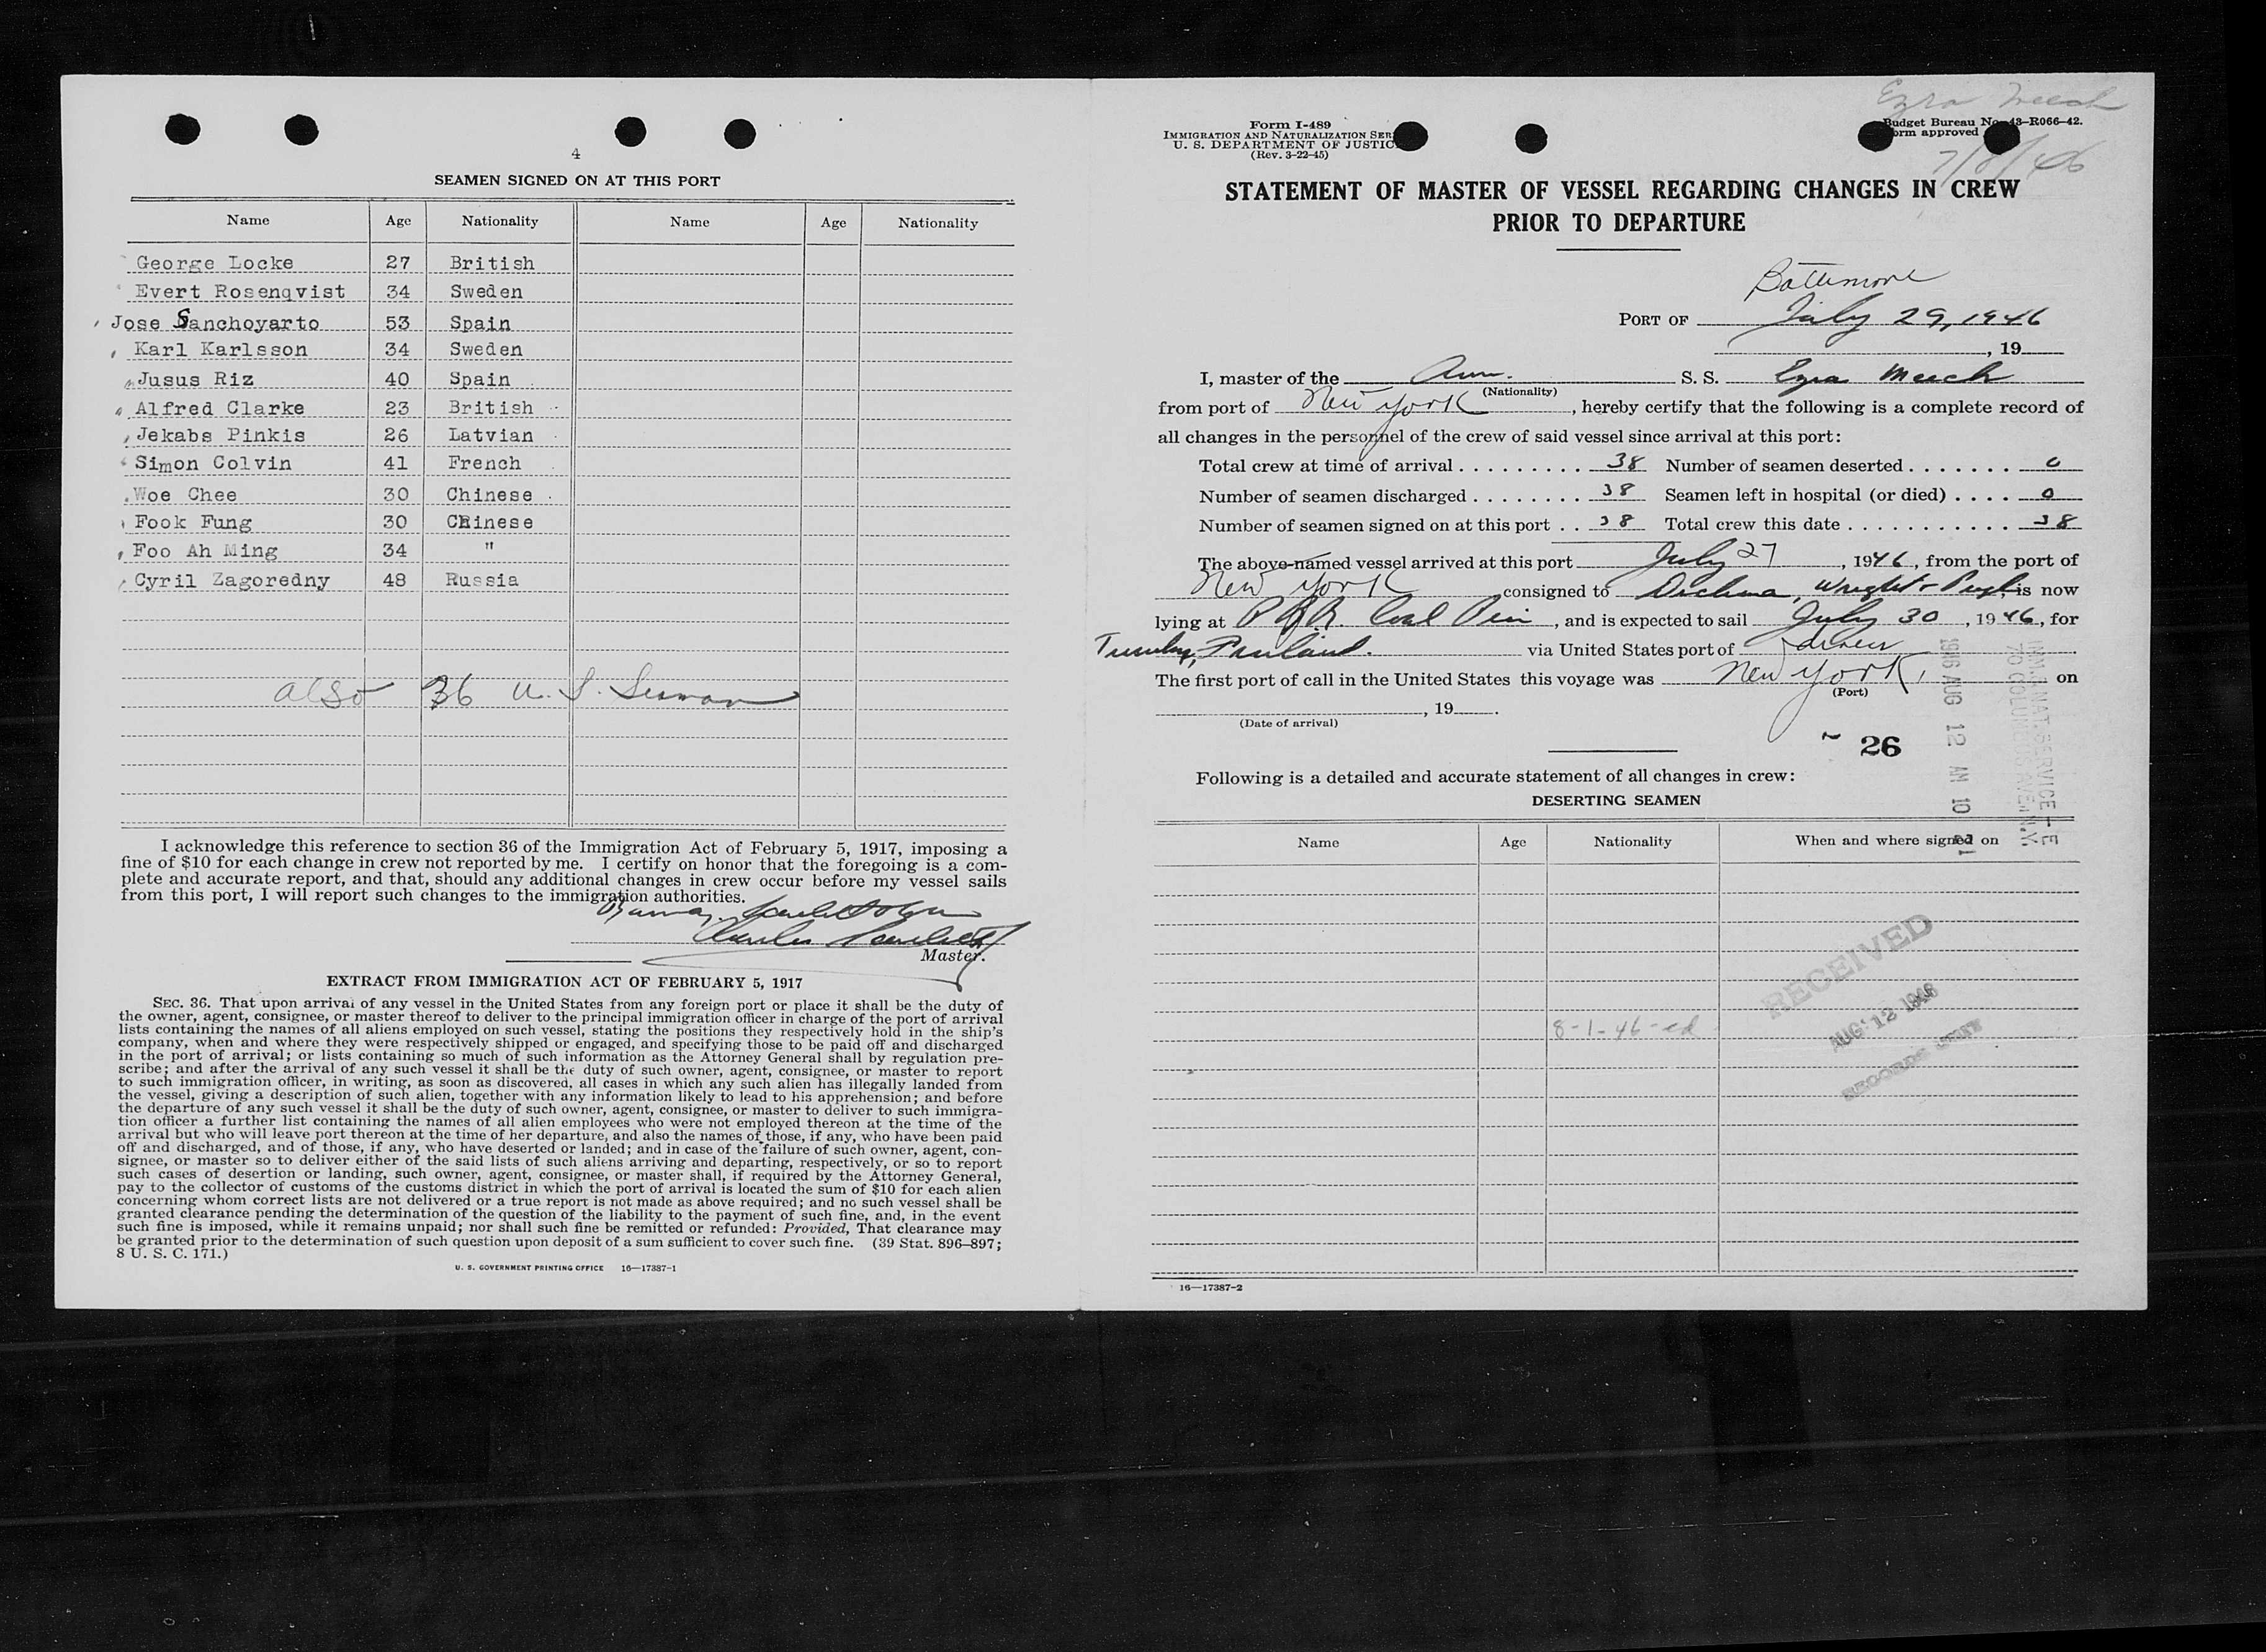 4
SEAMEN SIGNED ON AT THIS PORT
Name Age Nationality Name Age Nationality
George Locke 27 British
Evert Rosenqvist 34 Sweden
Jose Sanchoyarto 53 Spain
Karl Karlsson 34 Sweden
Jusus Riz 40 Spain
Alfred Clarke 23 British
Jekabs Pinkis 26 Latvian
Simon Colvin 41 French
Woe Chee 30 Chinese
Fook Fung 30 Chinese
Foo Ah Ming 34 "
Cyril Zagoredny 48 Russia
also 36 U. S. Seman
I acknowledge this reference to section 36 of the Immigration Act of February 5, 1917, imposing a
fine of $10 for each change in crew not reported by me. I certify on honor that the foregoing is a com-
plete and accurate report, and that, should any additional changes in crew occur before my vessel sails
from this port, I will report such changes to the immigration authorities.
Charles
Master.
EXTRACT FROM IMMIGRATION ACT OF FEBRUARY 5, 1917
SEC. 36. That upon arrival of any vessel in the United States from any foreign port or place it shall be the duty of
the owner, agent, consignee, or master thereof to deliver to the principal immigration officer in charge of the port of arrival
lists containing the names of all aliens employed on such vessel, stating the positions they respectively hold in the ship's
company, when and where they were respectively shipped or engaged, and specifying those to be paid off and discharged
in the port of arrival; or lists containing so much of such information as the Attorney General shall by regulation pre-
scribe; and after the arrival of any such vessel it shall be the duty of such owner, agent, consignee, or master to report
to such immigration officer, in writing, as soon as discovered, all cases in which any such alien has illegally landed from
the vessel, giving a description of such alien, together with any information likely to lead to his apprehension; and before
the departure of any such vessel it shall be the duty of such owner, agent, consignee, or master to deliver to such immigra-
tion officer a further list containing the names of all alien employees who were not employed thereon at the time of the
arrival but who will leave port thereon at the time of her departure, and also the names of those, if any, who have been paid
off and discharged, and of those, if any, who have deserted or landed; and in case of the failure of such owner, agent, con-
signee, or master so to deliver either of the said lists of such aliens arriving and departing, respectively, or so to report
such cases of desertion or landing, such owner, agent, consignee, or master shall, if required by the Attorney General,
pay to the collector of customs of the customs district in which the port of arrival is located the sum of $10 for each alien
concerning whom correct lists are not delivered or a true report is not made as above required; and no such vessel shall be
granted clearance pending the determination of the question of the liability to the payment of such fine, and, in the event
such fine is imposed, while it remains unpaid; nor shall such fine be remitted or refunded: Provided, That clearance may
be granted prior to the determination of such question upon deposit of a sum sufficient to cover such fine. (39 Stat. 896–897;
8 U. S. C. 171.)
U. S. GOVERNMENT PRINTING OFFICE 16—17387-1
Ezra Meech
Form I-489
IMMIGRATION AND NATURALIZATION SER
U. S. DEPARTMENT OF JUSTIC
(Rev. 3-22-45)
Budget Bureau No. 43–R066–42.
orm approved
7/8/46
STATEMENT OF MASTER OF VESSEL REGARDING CHANGES IN CREW
PRIOR TO DEPARTURE
Baltimore
PORT OF July 29, 1946
, 19
I, master of the Am. S. S. Ezra Meech
(Nationality)
from port of New York , hereby certify that the following is a complete record of
all changes in the personnel of the crew of said vessel since arrival at this port:
Total crew at time of arrival . . . . . . . . . 38 Number of seamen deserted . . . . . . . 0
Number of seamen discharged . . . . . . . . 38 Seamen left in hospital (or died) . . . . 0
Number of seamen signed on at this port . . 38 Total crew this date . . . . . . . . . . . . 38
The above-named vessel arrived at this port July 27 , 1946, from the port of
New York consigned to Wright + Pugh, is now
lying at P.R.R. Coal Pier , and is expected to sail July 30 , 1946, for
via United States port of direct
The first port of call in the United States this voyage was New York, on
(Port)
, 19 .
(Date of arrival)
26
IMM. & NAT. SERVICE - E
70 COLUMBUS AVE. N.Y.
1946 AUG 12 AM 10 21
Following is a detailed and accurate statement of all changes in crew:
DESERTING SEAMEN
Name Age Nationality When and where signed on
RECEIVED
AUG 12 1946
RECORDS UNIT
8-1-46-ed
16—17387-2